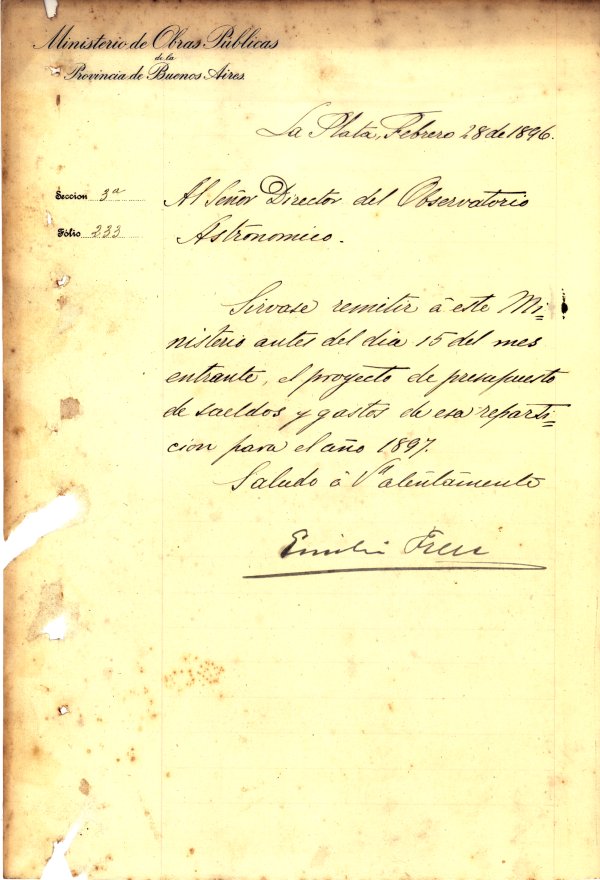 Ministerio de Obras Públicas
de la
Provincia de Buenos Aires
La Plata, Febrero 28 de 1896.
Seccion 3ª
Fólio 233
Al Señor Director del Observatorio
Astronomico.
Sirvase remitir á este Mi-
nisterio antes del dia 15 del mes
entrante, el proyecto de presupuesto
de sueldos y gastos de esa reparti-
cion para el año 1897.
Saludo á Vd atentamente
Emilio Frers